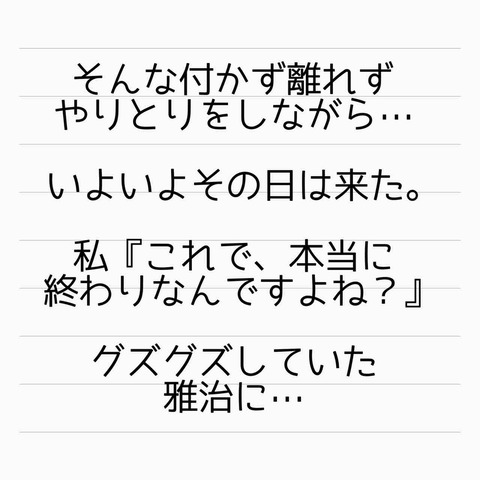 そんな付かず離れず
やりとりをしながら…
いよいよその日は来た。
私『これで、本当に
終わりなんですよね？』
グズグズしていた
雅治に…